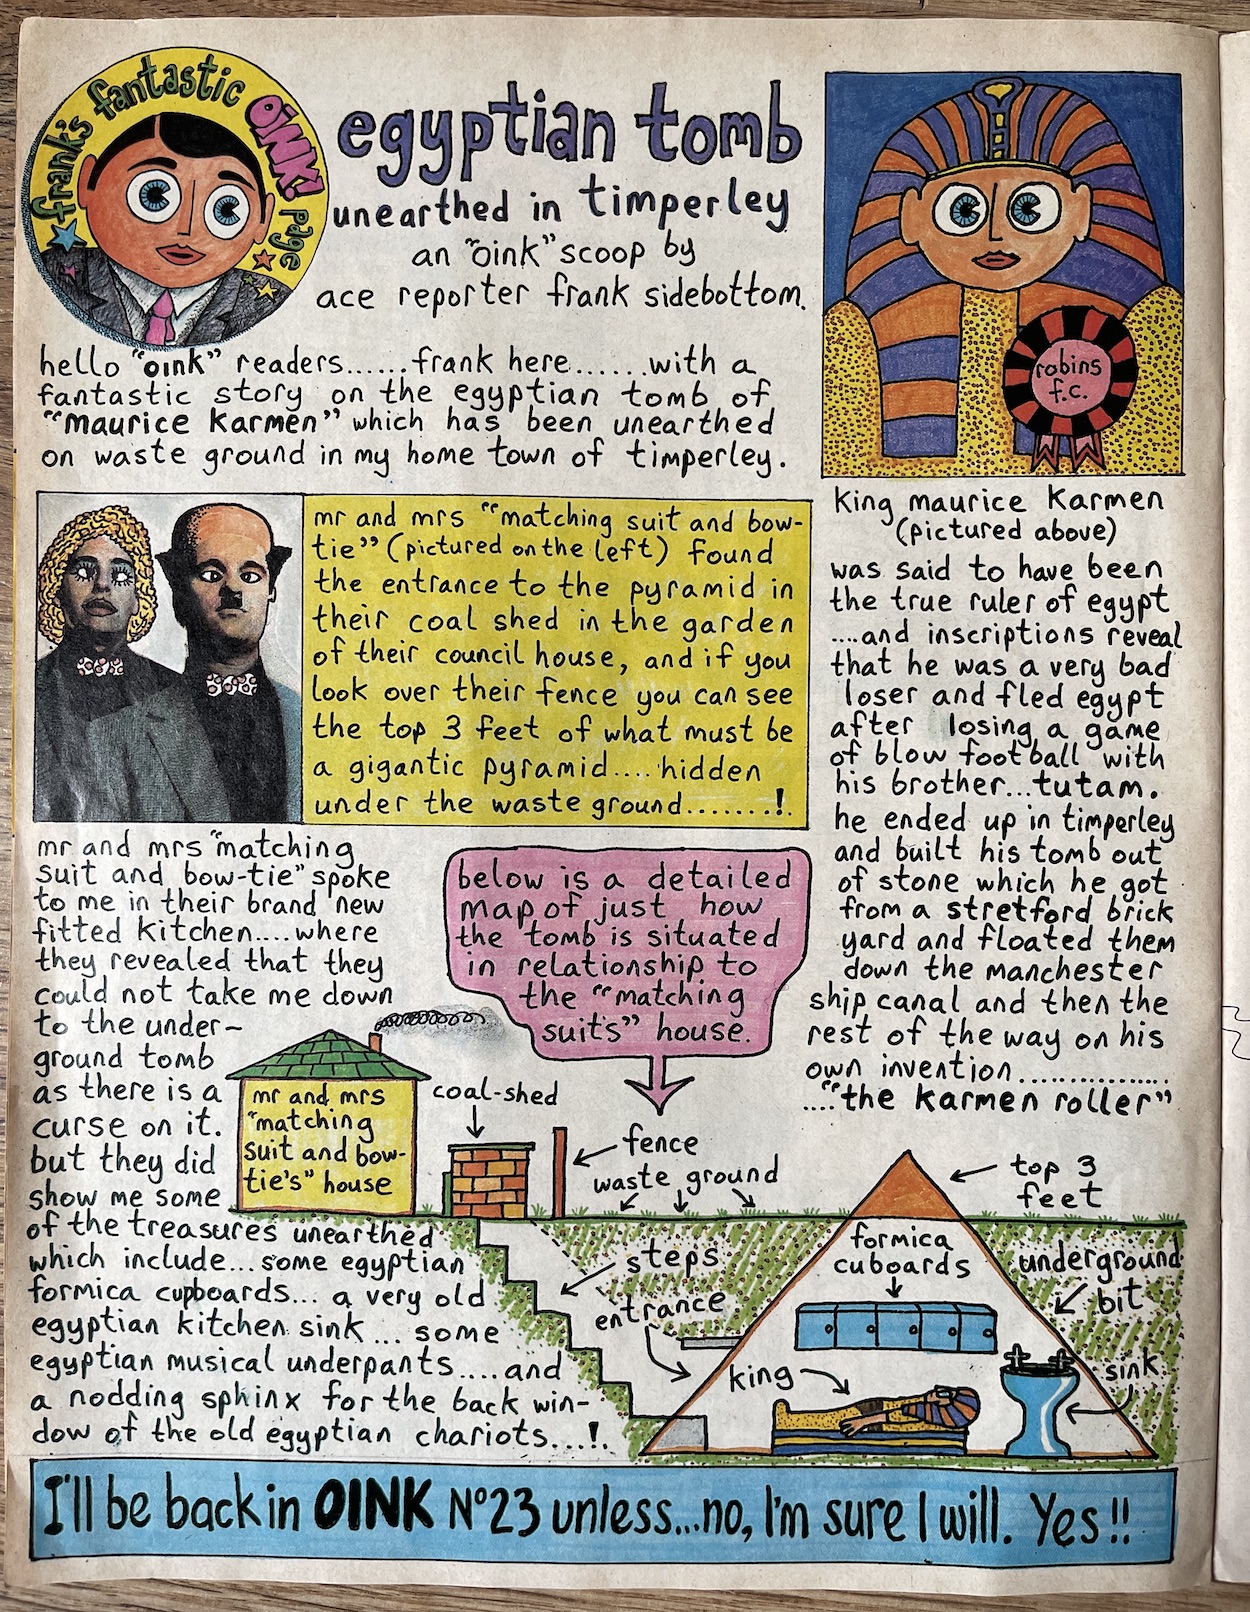 frank's fantastic OiNK! page
egyptian tomb
unearthed in timperley
an "oink" scoop by
ace reporter frank sidebottom.
hello "oink" readers......frank here......with a
fantastic story on the egyptian tomb of
"maurice karmen" which has been unearthed
on waste ground in my home town of timperley.
robins
f.c.
mr and mrs "matching suit and bow-
tie" (pictured on the left) found
the entrance to the pyramid in
their coal shed in the garden
of their council house, and if you
look over their fence you can see
the top 3 feet of what must be
a gigantic pyramid....hidden
under the waste ground.......!.
king maurice karmen
(pictured above)
was said to have been
the true ruler of egypt
....and inscriptions reveal
that he was a very bad
loser and fled egypt
after losing a game
of blow football with
his brother...tutam.
he ended up in timperley
and built his tomb out
of stone which he got
from a stretford brick
yard and floated them
down the manchester
ship canal and then the
rest of the way on his
own invention................
...."the karmen roller"
mr and mrs "matching
suit and bow-tie" spoke
to me in their brand new
fitted kitchen....where
they revealed that they
could not take me down
to the under-
ground tomb
as there is a
curse on it.
but they did
show me some
of the treasures unearthed
which include...some egyptian
formica cupboards... a very old
egyptian kitchen sink... some
egyptian musical underpants....and
a nodding sphinx for the back win-
dow of the old egyptian chariots...!.
below is a detailed
map of just how
the tomb is situated
in relationship to
the "matching
suit's" house.
mr and mrs
"matching
suit and bow-
tie's" house
coal-shed
fence
waste ground
top 3
feet
steps
entrance
formica
cuboards
underground
bit
king
sink
I'll be back in OINK Nº23 unless...no, I'm sure I will. Yes!!